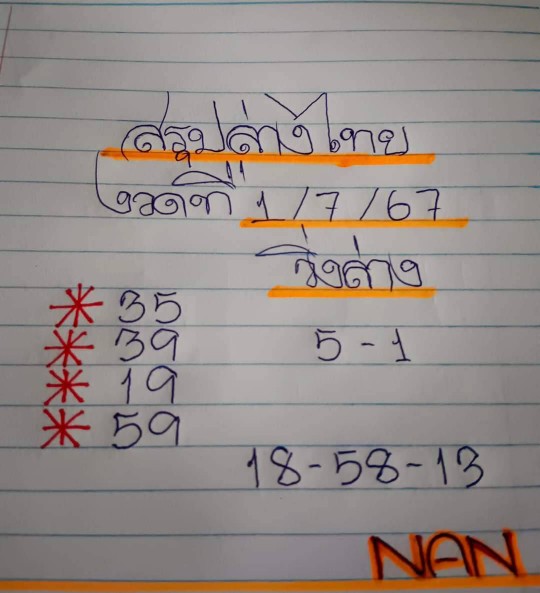 สรุปล่างไทย
งวดที่ 1/7/67
วิ่งล่าง
35
39
5-1
19
59
18-58-13
NAN